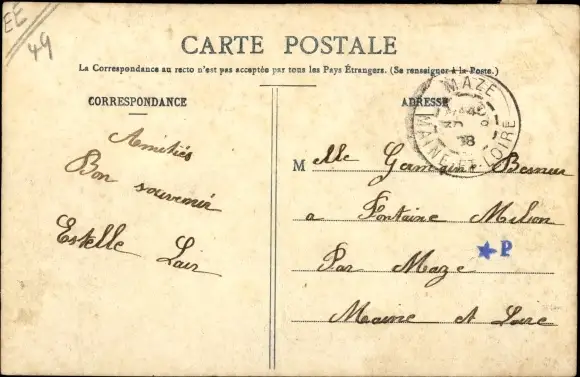 EE
49
CARTE POSTALE
La Correspondance au recto n'est pas acceptée par tous les Pays Étrangers. (Se renseigner à la Poste.)
CORRESPONDANCE
ADRESSE
MAZÉ
MAINE-ET-LOIRE
Amitiés
Bon souvenir
Estelle Lair
Melle Germaine
a Fontaine Milon
Par Mazé
Maine et Loire
P